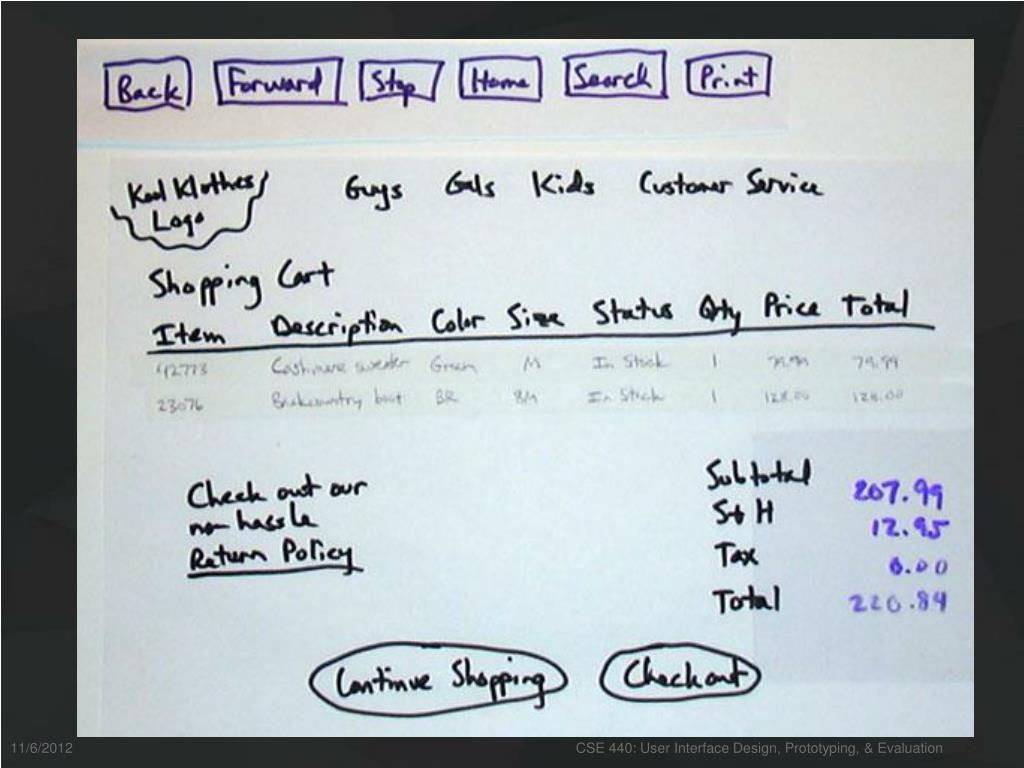 Back Forward Stop Home Search Print
Kool Klothes Guys Gals Kids Customer Service
Logo
Shopping Cart
Item Description Color Size Status Qty Price Total
42773 Cashmere sweater Green M In Stock 1 79.99 79.99
23076 Backcountry boot BR 8M In Stock 1 128.00 128.00
Check out our
no hassle
Return Policy
Subtotal 207.99
S+H 12.95
Tax 0.00
Total 220.94
Continue Shopping Checkout
11/6/2012 CSE 440: User Interface Design, Prototyping, & Evaluation